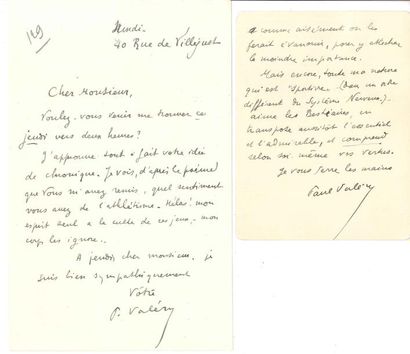 129
Lundi
40 Rue de Villejust
Cher Monsieur,
Voulez-vous venir me trouver ce
jeudi vers deux heures?
J'approuve tout à fait votre idée
de chronique. Je vois, d'après le poème
que vous m'avez remis, quel sentiment
vous avez de l'athlétisme. Hélas! mon
esprit seul a le culte de ces jeux, mon
corps les ignore..
A jeudi cher monsieur, je
suis bien sympathiquement
Vôtre
P. Valéry
comme aisément on les
ferait évanouir, pour y attacher
la moindre importance.
Mais encore, toute ma nature
qui est sportive (dans un ordre
différent du Système Nerveux)
aime les Bestiaires, en
transpose aussitôt l'essentiel
et l'admirable, et comprend
selon soi-même vos vertus.
Je vous serre les mains
Paul Valéry